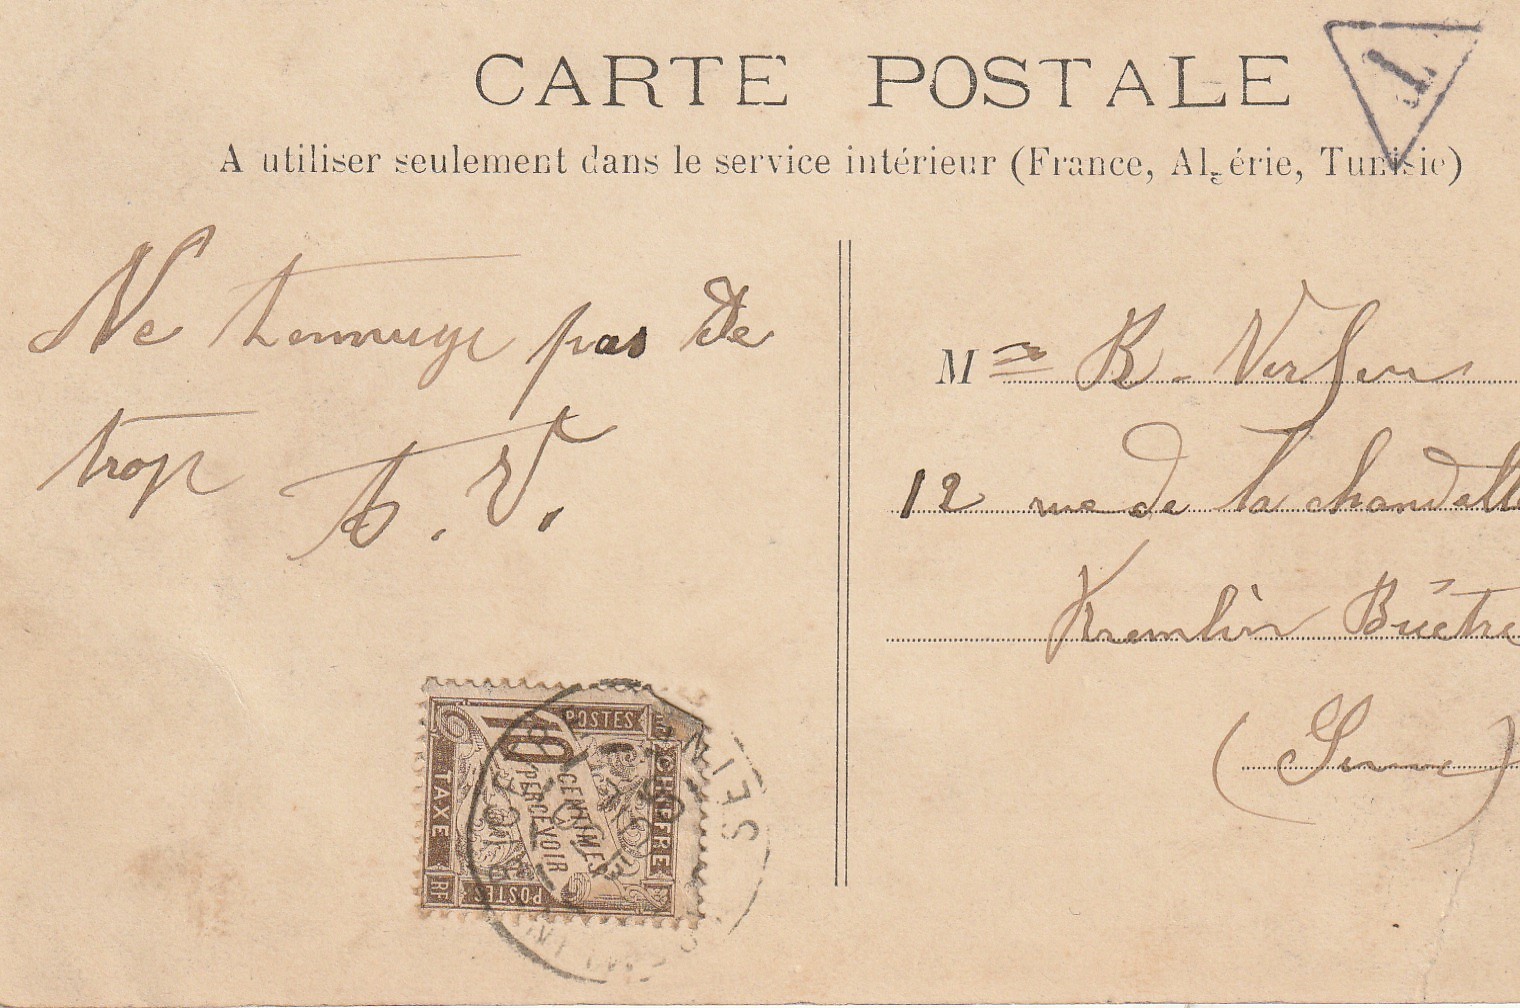 CARTE POSTALE
T
A utiliser seulement dans le service intérieur (France, Algérie, Tunisie)
Ne t'ennuye pas de
trop A. V.
M
12 rue de la chandelle
Kremlin Bicêtre
(Seine)
POSTES
10
CENTIMES
A PERCEVOIR
CHIFFRE
TAXE
POSTES
RF
SEINE